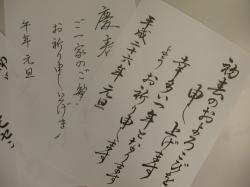 初春のおよろこびを
申し上げます
幸多い一年となります
よう お祈り申します
平成二六年 元旦
慶春
ご一家のご幸
お祈り申しあげます
午年 元旦